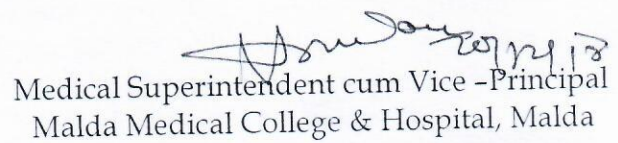 Medical Superintendent cum Vice –Principal
Malda Medical College & Hospital, Malda